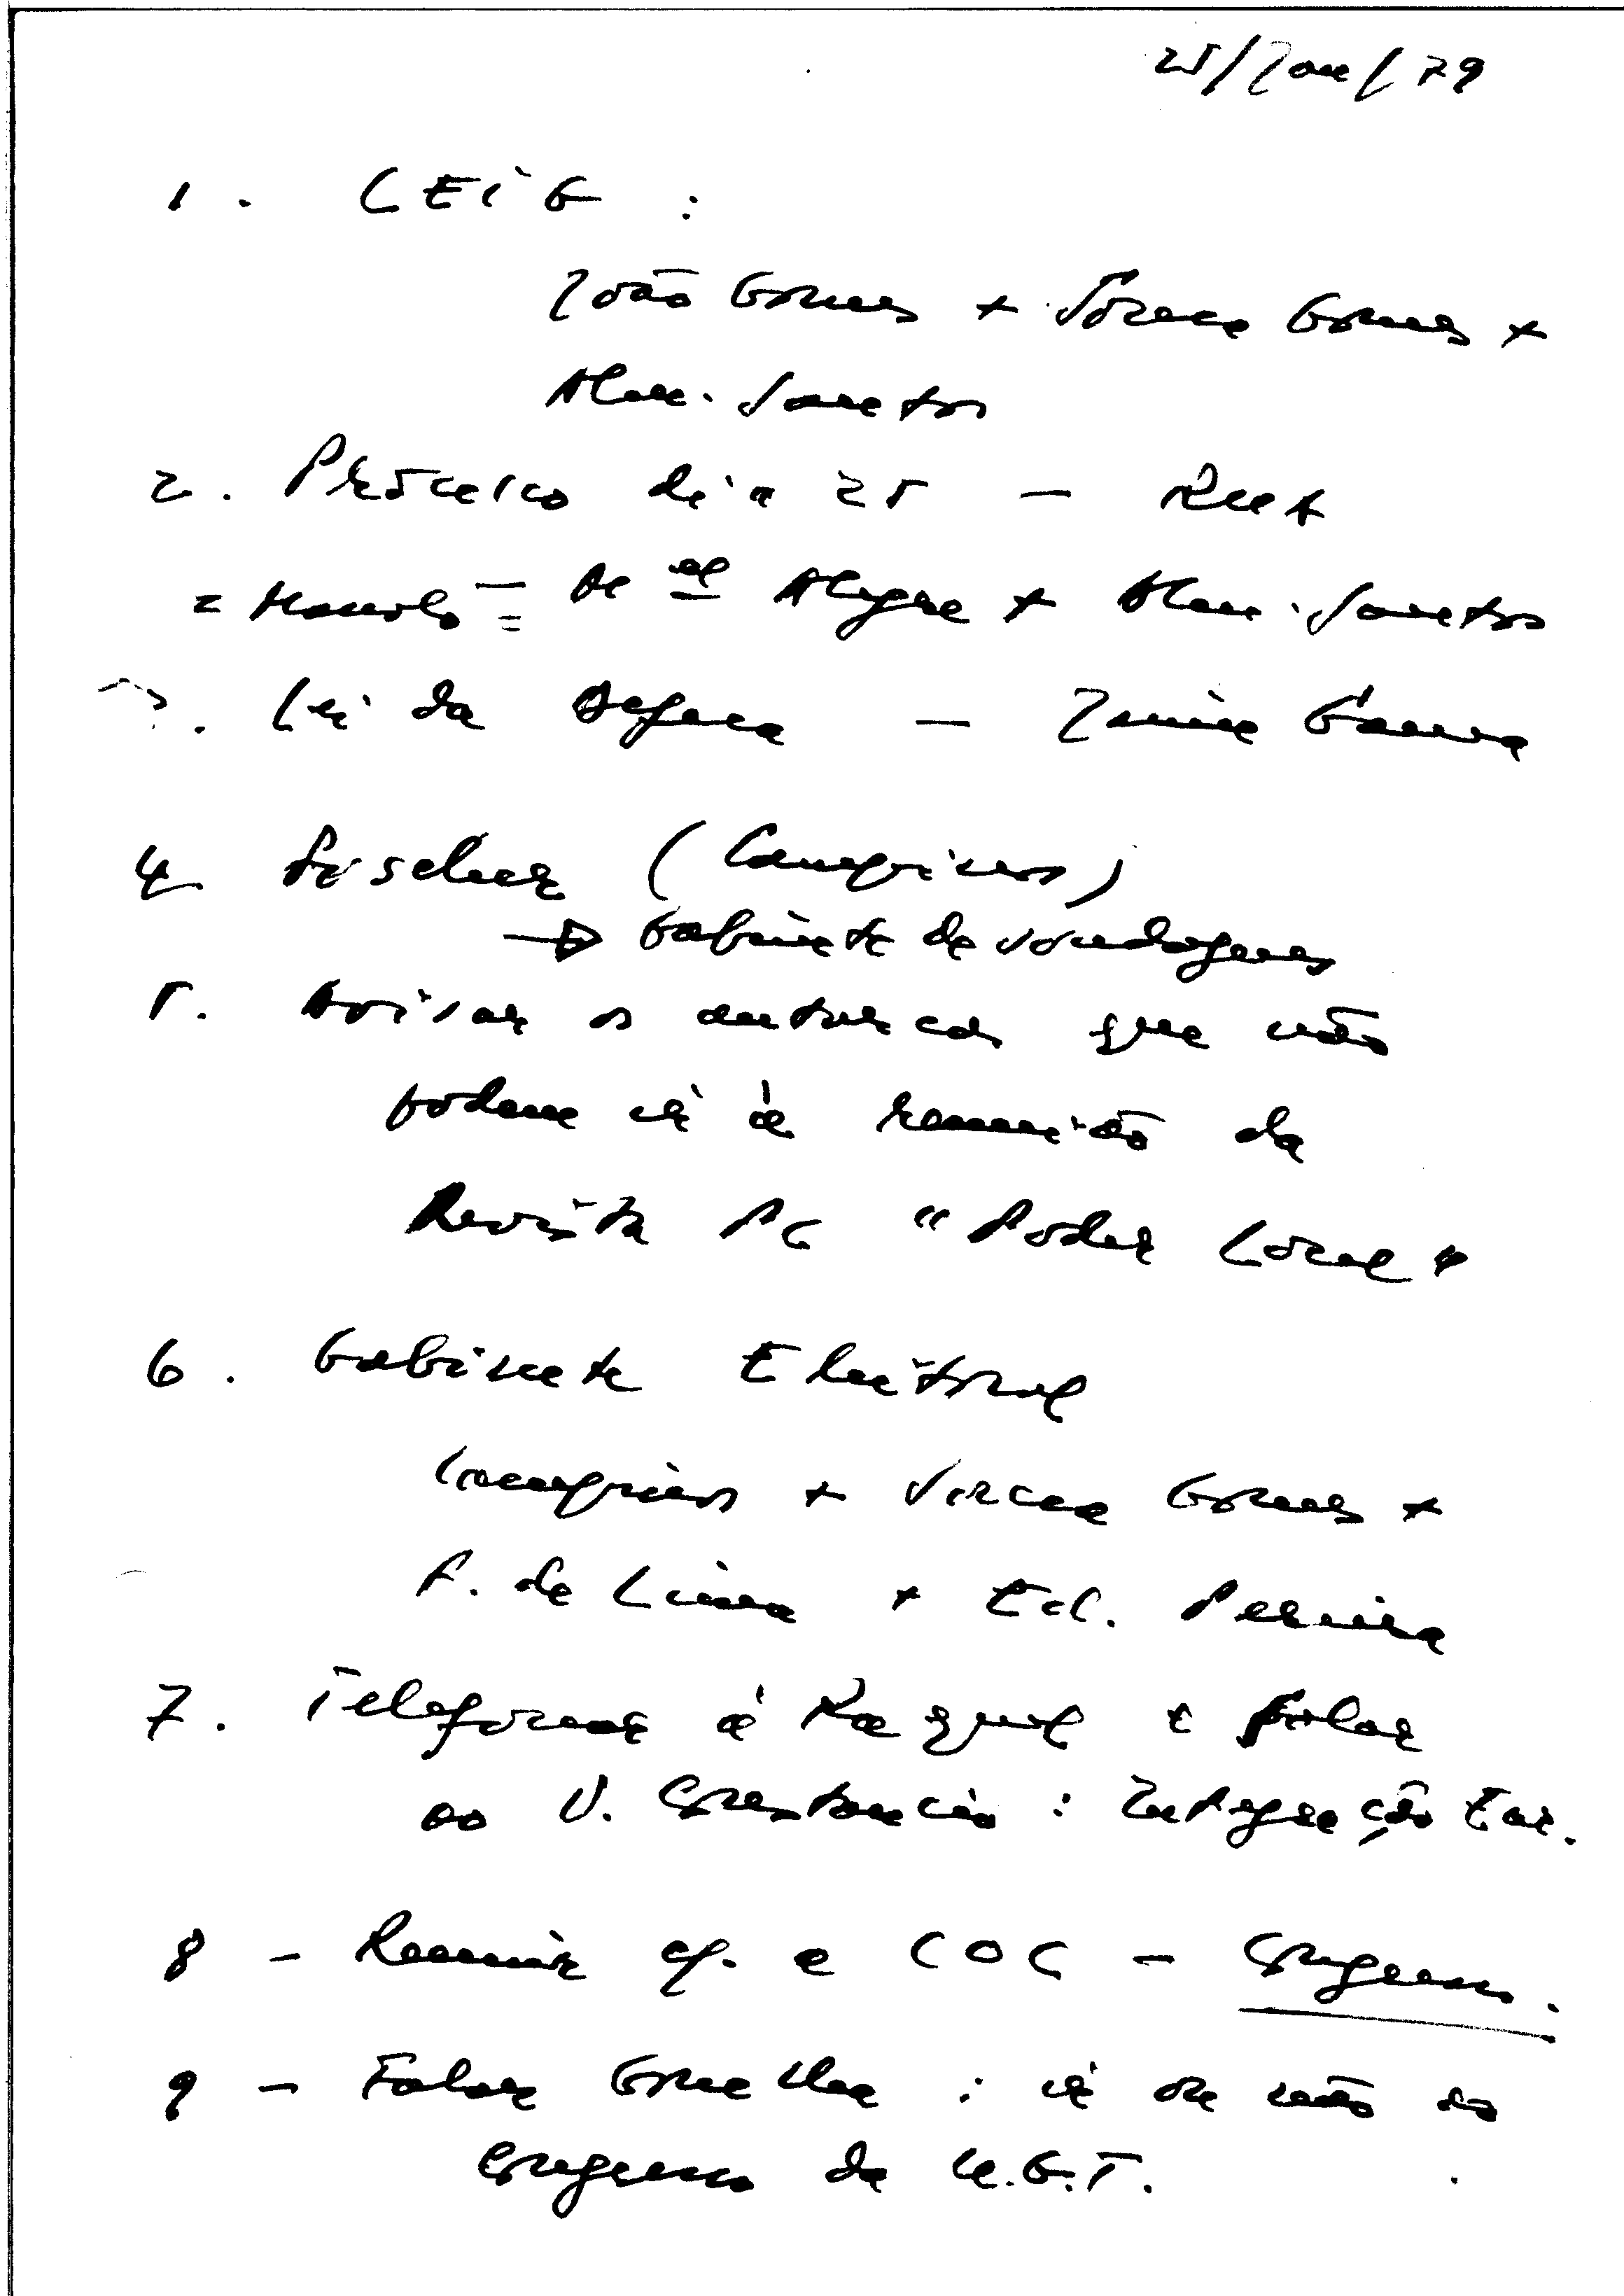 25/Jan/79
1. CEIG :
João Gomes + Sousa Gomes +
Alm. Santos
2. Processo dia 25 -
= = Mel Alegre + Alm. Santos
3. Lei da Defesa - Jaime Gama
4. Fischer (Campinos)
→ Gabinete de sondagens
5. Avisar os autarcas que não
podem ir à reunião da
Revista PC "Poder Local"
6. Gabinete Eleitoral
Campinos + Sousa Gomes +
P. de Lima + Ed. Pereira
7. Telefonar à Raquel e falar
ao V. Constâncio : Integração Eur.
8 - Reunir cf. a COC - Congresso.
9 - Falar Gonelha : ir ou não ao
Congresso da U.G.T.